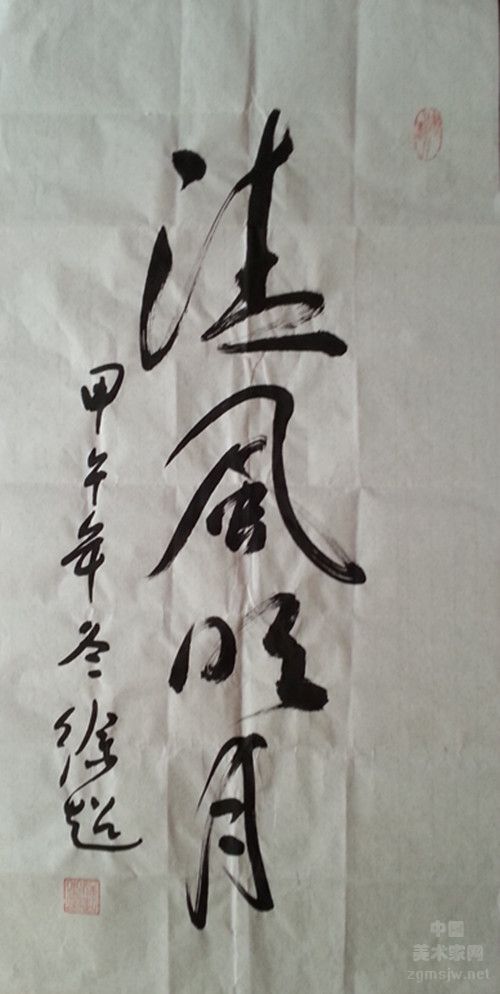 清风明月
甲午年冬徐超
中国
美术家网
zgmsjw.net